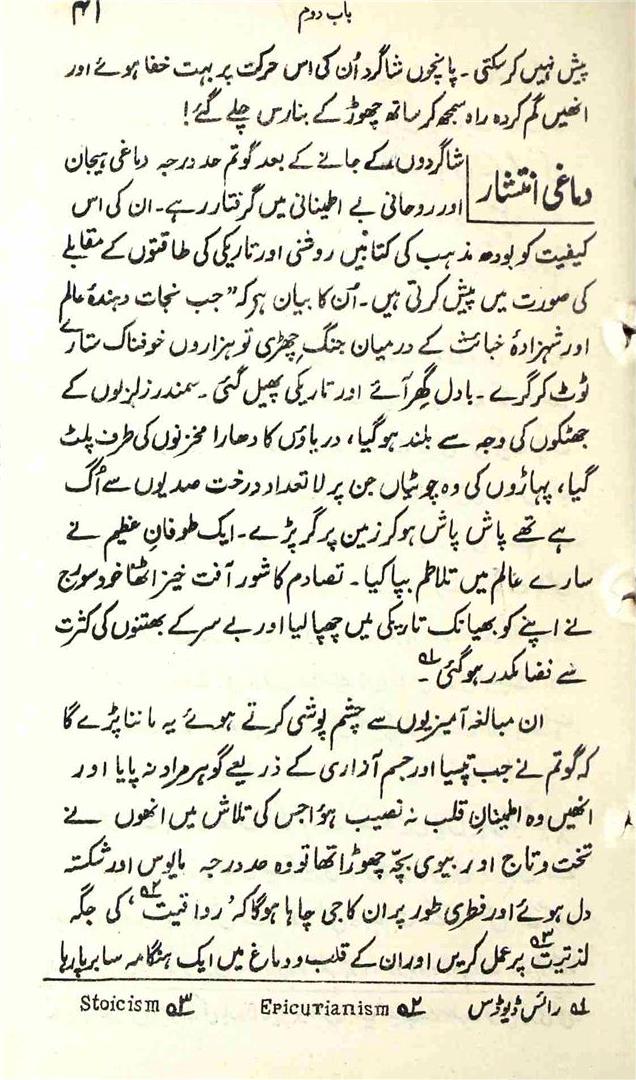 ۴۱ باب دوم
پیش نہیں کرسکتی ۔ پانچوں شاگرد اُن کی اس حرکت پر بہت خفا ہوئے اور
انھیں گم کردہ راہ سمجھ کر ساتھ چھوڑ کے بنارس چلے گئے!
دماغی انتشار
شاگردوں کے جانے کے بعد گوتم حد درجہ دماغی ہیجان
اور روحانی بے اطینانی میں گرفتار رہے۔ ان کی اس
کیفیت کو بودھ مذہب کی کتابیں روشنی اور تاریکی کی طاقتوں کے مقابلے
کی صورت میں پیش کرتی ہیں۔ اُن کا بیان ہی کہ ”جب نجات دہندۂ عالم
اور شہزادۂ خباثت کے درمیان جنگ چھڑی تو ہزاروں خوفناک ستارے
ٹوٹ کر گرے ۔ بادل گھر آئے اور تاریکی پھیل گئی ۔ سمندر زلزلوں کے
جھٹکوں کی وجہ سے بلند ہوگیا، دریاؤں کا دھارا مخزنوں کی طرف پلٹ
گیا، پہاڑوں کی وہ چوٹیاں جن پر لاتعداد درخت صدیوں سے اُگ
ہے تھے پاش پاش ہوکر زمین پر گر پڑے ۔ ایک طوفانِ عظیم نے
سارے عالم میں تلاطم بپا کیا ۔ تصادم کا شور آفت خیز اٹھا خود سورج
نے اپنے کو بھیانک تاریکی میں چھپا لیا اور بے سر کے بھتنوں کی کثرت
سے فضا مکدر ہوگئی ۱؎ ۔
ان مبالغہ آمیزیوں سے چشم پوشی کرتے ہوئے یہ ماننا پڑے گا
کہ گوتم نے جب تپسیا اور جسم آزاری کے ذریعے گوہر مراد نہ پایا اور
انھیں وہ اطینانِ قلب نہ نصیب ہؤا جس کی تلاش میں انھوں نے
تخت و تاج اور بیوی بچّہ چھوڑا تھا تو وہ حد درجہ مایوس اور شکستہ
دل ہوئے اور فطری طور پر ان کا جی چاہا ہوگا کہ ’رواقیت ۲؎‘ کی جگہ
لذتیت ۳؎ پر عمل کریں اور ان کے قلب و دماغ میں ایک ہنگامہ سا برپا رہا
۱؎ رائس ڈیوڈس ۲؎ Epicurianism ۳؎ Stoicism